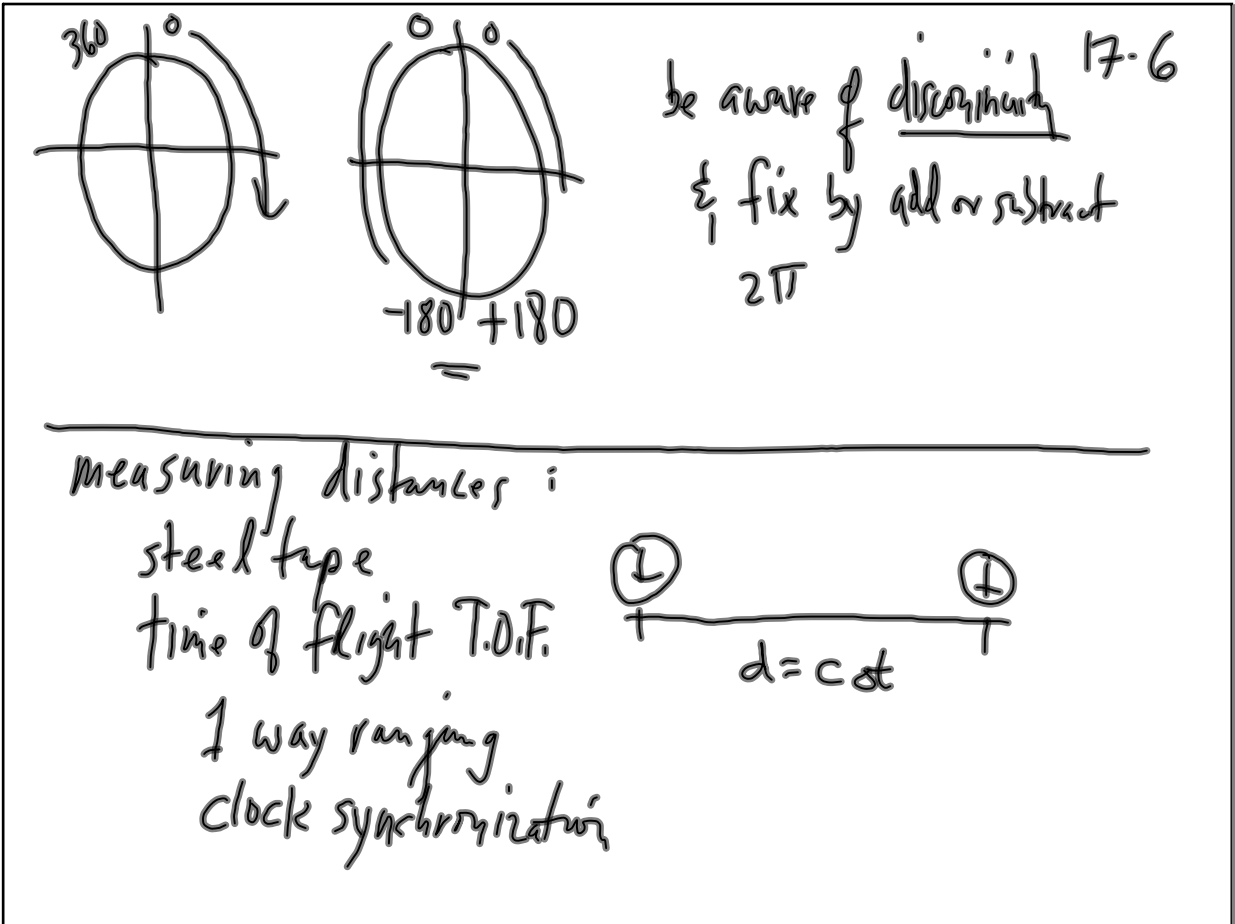 360 0
0 0
-180 +180
17-6
be aware of discontinuity
& fix by add or subtract
2π
measuring distances :
steel tape
time of flight T.O.F.
1 way ranging
clock synchronization
d = c Δt